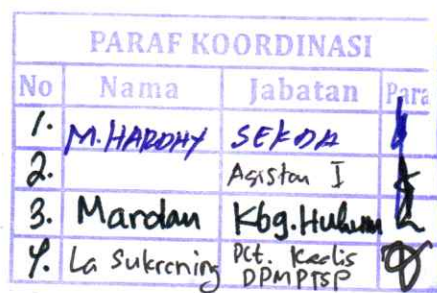 PARAF KOORDINASI
No Nama Jabatan Para
1. M. HARDHY SEKDA
2. Asistan I
3. Mardan Kbg. Hukum
4. La Sukrening Plt. Kadis
DPMPTSP